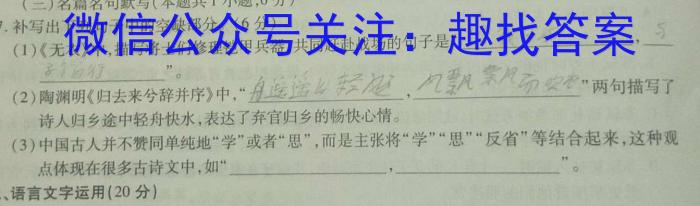 (三)名篇名句默写(本题共1小题,6分)
7.补写出下列句子中的空缺部分。(6分)
微信公众号关注：趣找答案
(1)《无衣》中,描写将士们修理铠甲兵器,共同赴战场的句子是“ , 与
子偕行”。
(2)陶渊明《归去来兮辞并序》中,“舟遥遥以轻飏,风飘飘而吹衣”两句描写了
诗人归乡途中轻舟快水,表达了弃官归乡的畅快心情。
(3)中国古人并不赞同单纯地“学”或者“思”,而是主张将“学”“思”“反省”等结合起来,这种观
点体现在很多古诗文中,如“ , ”。
、语言文字运用(20分)